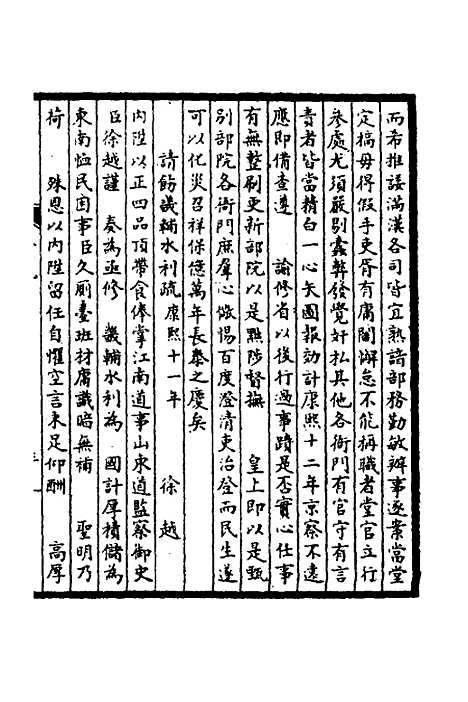 而希推諉滿漢各司皆宜熟諳部務勤敏辦事逐案當堂
定稿毋得假手吏胥有庸闒懈怠不能稱職者堂官立行
參處尤須嚴剔蠹弊發覺奸私其他各衙門有官守有言
責者皆當精白一心矢圖報効計康熙十二年京察不遠
應即備查遵 諭修省以後行過事蹟是否實心任事
有無整刷更新部院以是黜陟督撫 皇上即以是甄
別部院各衙門庶羣心儆惕百度澄清吏治登而民生遂
可以化災召祥保億萬年長泰之慶矣
請飭議畿輔水利疏康熙十一年 徐越
內陞以正四品頂帶食俸掌江南道事山東道監察御史
臣徐越謹 奏為亟修 畿輔水利為 國計厚積儲為
東南恤民困事臣久廁臺班材庸識暗無補 聖明乃
荷 殊恩以內陞留任自懼空言未足仰酬 高厚